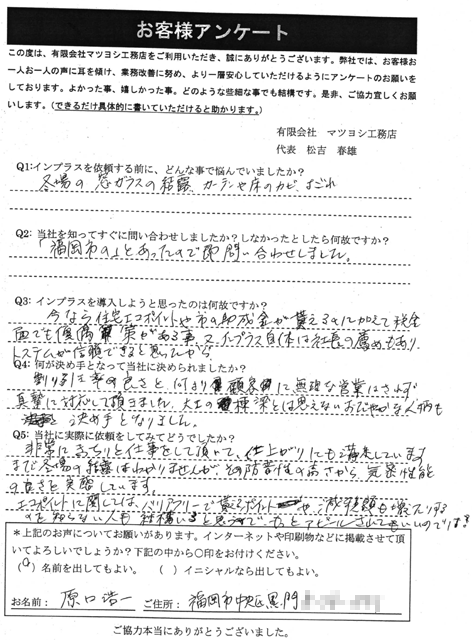 お客様アンケート
この度は、有限会社マツヨシ工務店をご利用いただき、誠にありがとうございます。弊社では、お客様お
一人お一人の声に耳を傾け、業務改善に努め、より一層安心していただけるようにアンケートのお願いを
しております。よかった事、嬉しかった事。どのような些細な事でも結構です。是非、ご協力宜しくお願
いします。（できるだけ具体的に書いていただけると助かります。）
有限会社 マツヨシ工務店
代表 松吉 春雄
Q1:インプラスを依頼する前に、どんな事で悩んでいましたか？
冬場の窓ガラスの結露、カーテンや床のカビ、よごれ
Q2: 当社を知ってすぐに問い合わせしましたか？しなかったとしたら何故ですか？
「福岡市の」とあったので即問い合わせしました。
Q3: インプラスを導入しようと思ったのは何故ですか？
今なら住宅エコポイントや市の助成金が貰えるのに加えて税金
面でも優偶策がある事、インプラス自体は社長の薦めもあり
システムが信頼できると思ったから
Q4: 何が決め手となって当社に決められましたか？
割り引き率の良さと何より顧客に無理な営業はされず
真摯に対応して頂けました。大工の棟梁とは思えないおだやかな人柄も
決め手となりました。
Q5: 当社に実際に依頼をしてみてどうでしたか？
非常にきっちりと仕事をして頂いて、仕上がりにも満足しています
まだ冬場の結露はわかりませんが、その防音性の高さから、気密性能
の良さを実感しています。
エコポイントに関しては、バリアフリーで貰えるポイントや
のを知らない人も結構いると思うので、もっとアピールされても良いのでは？
＊上記のお声についてお願いがあります。インターネットや印刷物などに掲載させて頂
いてよろしいでしょうか？下記の中から〇印をお付けください。
(〇) 名前を出してもよい。 ( ) イニシャルなら出してもよい。
お名前： 原口浩一 ご住所： 福岡市中央区黒門
ご協力本当にありがとうございました。